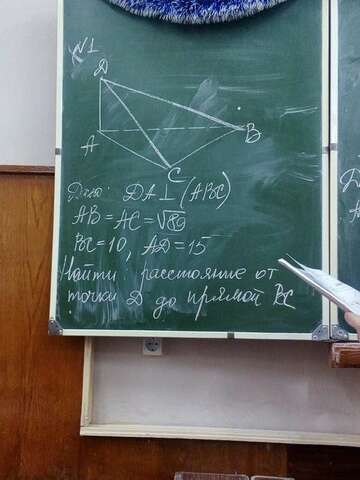 №1
D
A
B
C
Дано: DA⊥(ABC)
AB=AC=√89
BC=10, AD=15
Найти: расстояние от
точки D до прямой BC